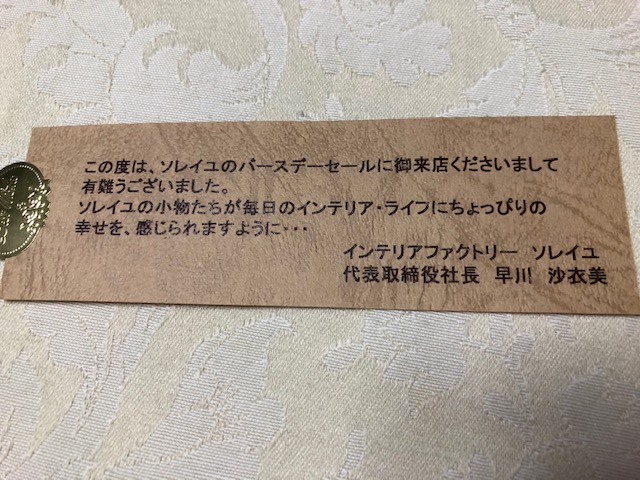 この度は、ソレイユのバースデーセールに御来店くださいまして
有難うございました。
ソレイユの小物たちが毎日のインテリア・ライフにちょっぴりの
幸せを、感じられますように・・・
インテリアファクトリー　ソレイユ
代表取締役社長　早川　沙衣美